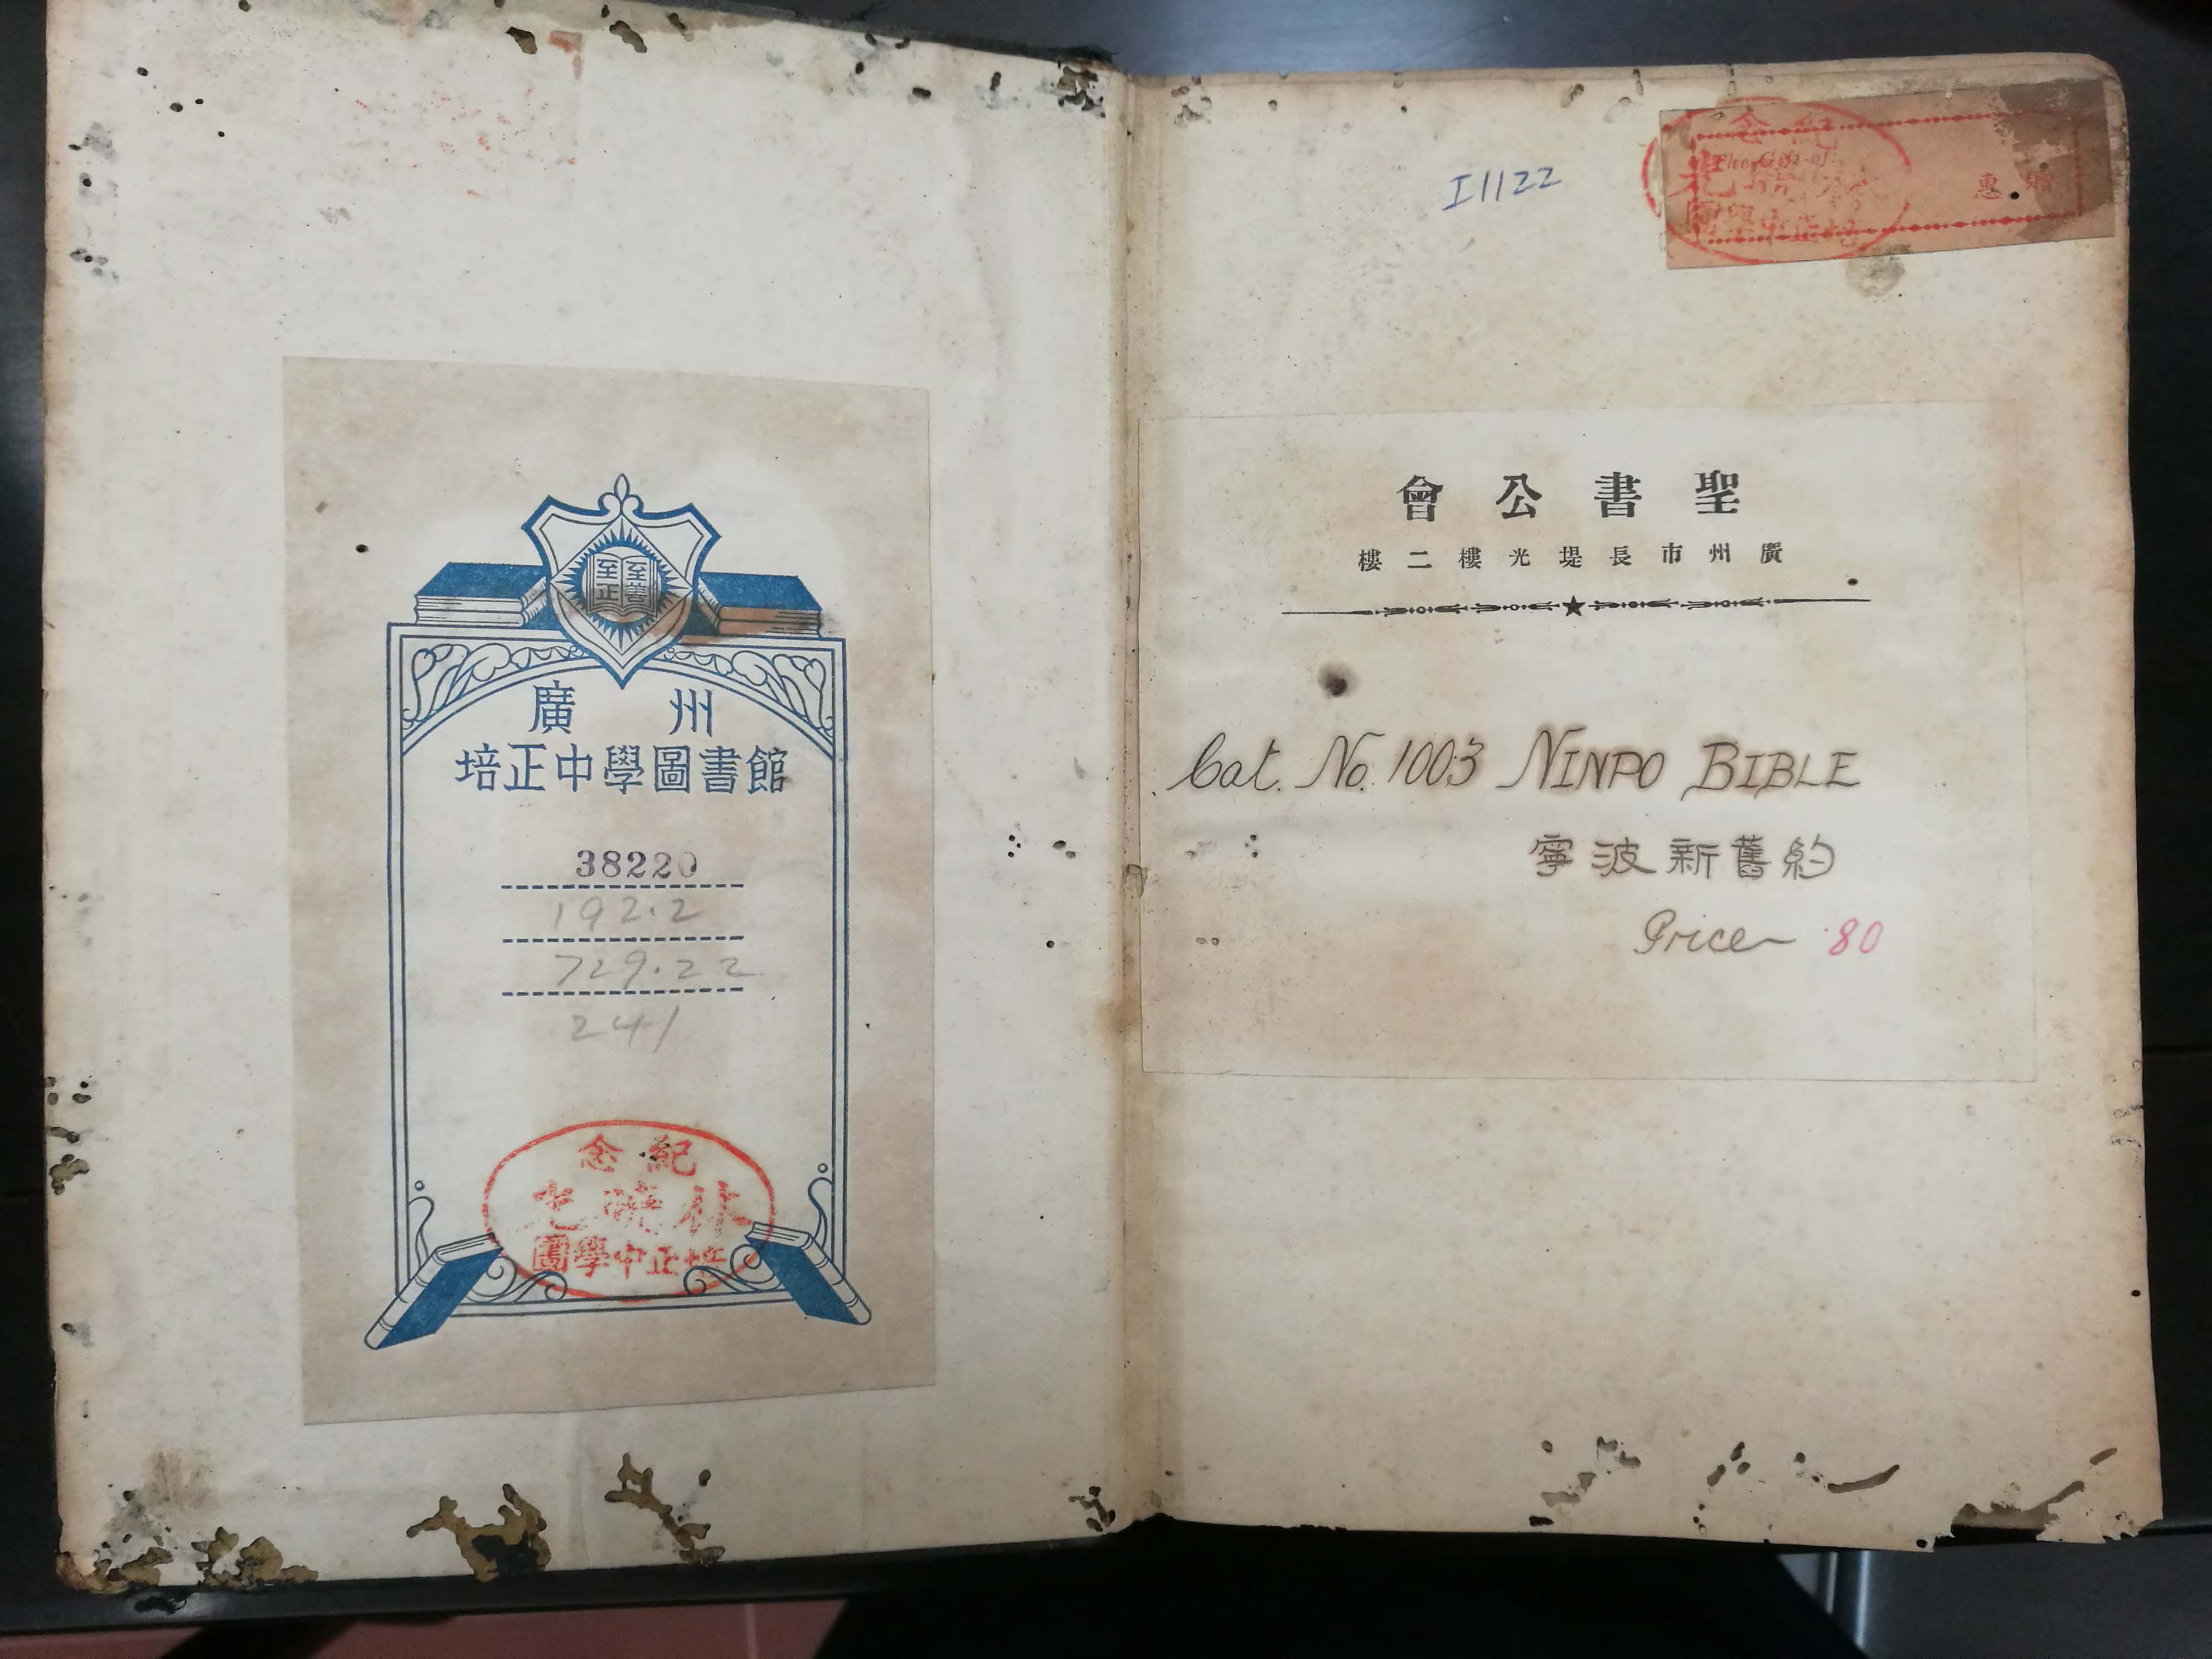 至善
至正
廣 州
培正中學圖書館
38220
192.2
729.22
241
紀念
林曉光
培正中學圖
I1122
紀念
The Gift of:
惠
聖書公會
廣州市長堤光樓二樓
Cat. No. 1003 NINPO BIBLE
寧波新舊約
Price .80